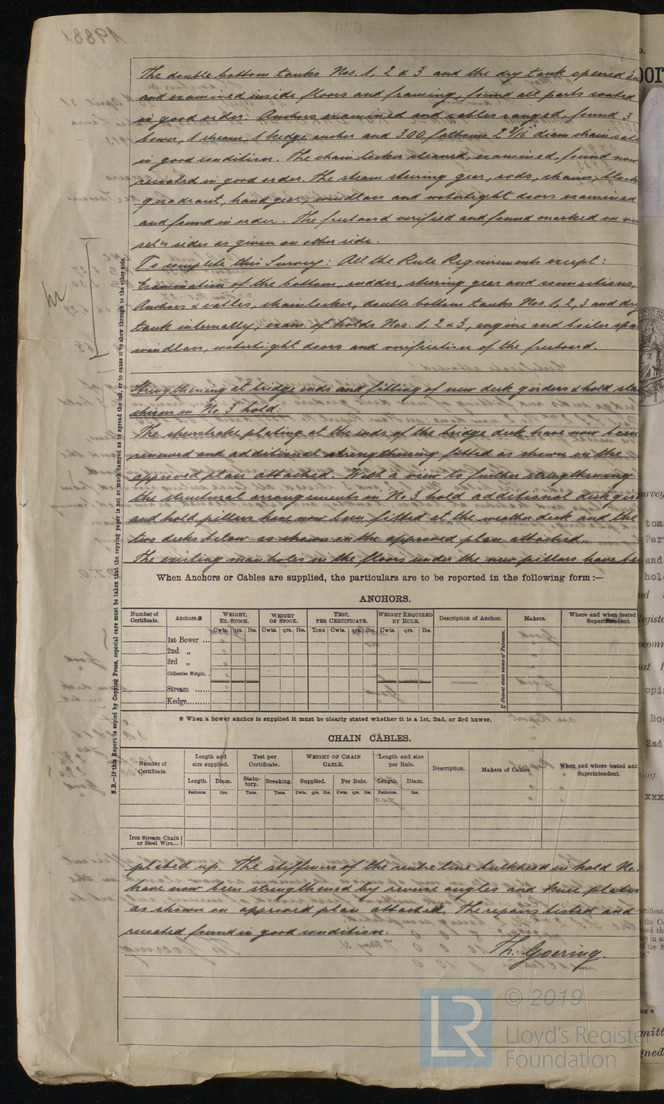 The double bottom tanks Nos. 1, 2 & 3 and the dry tank opened
and examined inside floors and framing, found all parts coated
in good order. Anchors examined and cables ranged found 3
bower, 1 stream, 1 kedge anchor and 300 fathoms 2 9/16 diam chain
in good condition. The chain locker cleaned, examined, found now
recoated in good order. The steam steering gear, rods, chains, blocks
quadrant, hand gear, windlass and watertight doors examined
and found in order. The freeboard verified and found marked on
sel's sides as given on other side.
To complete this Survey: All the Rule Requirements except:
Examination of the bottom, rudder, steering gear and connections,
Anchors & cables, chainlocker, double bottom tanks Nos 1, 2, 3 and dry
tank internally, exam. of holds Nos. 1, 2 & 3, engine and boiler
windlass, watertight doors and verification of the freeboard.
Strengthening at bridge ends and fitting of new deck girders & hold
in No. 3 hold.
The sheerstrake plating at the ends of the bridge deck have now been
renewed and additional strengthening fitted as shown in the
approved plan attached. With a view to further strengthening
the structural arrangements in No. 3 hold additional deck
and hold pillars have now been fitted at the weather deck and the
two decks below as shown on the approved plan attached.
The existing manholes in the floors under the new pillars have
N.B.—If this Report is copied by Copying Press, especial care must be taken that the copying paper is not so much damped as to spread the ink, or to cause it to show through to the other side.
When Anchors or Cables are supplied, the particulars are to be reported in the following form:—
ANCHORS.
Number of Certificate. Anchors.* WEIGHT, EX. STOCK. WEIGHT OF STOCK. TEST, PER CERTIFICATE. WEIGHT REQUIRED BY RULE. Description of Anchor. Makers. Where and when tested Superintendent.
Cwts. qrs. lbs. Cwts. qrs. lbs. Tons cwts. qrs. lbs. Cwts. qrs. lbs.
1st Bower ...
2nd „
3rd „
Collective Weight.
Stream ......
Kedge.......
If Patent state name of Patentee.
* When a bower anchor is supplied it must be clearly stated whether it is a 1st, 2nd, or 3rd bower.
CHAIN CABLES.
Number of Certificate. Length and size supplied. Test per Certificate. WEIGHT OF CHAIN CABLE. Length and size per Rule. Description. Makers of Cables. When and where tested and Superintendent.
Length. Diam. Statutory. Breaking. Supplied. Per Rule. Length. Diam.
Fathoms. Ins. Tons. Tons. Cwts. qrs. lbs. Cwts. qrs. lbs. Fathoms. Ins.
Iron Stream Chain or Steel Wire...
plated up. The stiffeners of the centre line bulkhead in hold No.
have now been strengthened by reverse angles and knee plates
as shown on approved plan attached. The repairs tested and
recoated found in good condition.
Th. Goering.
LR © 2019
Lloyd's Register
Foundation